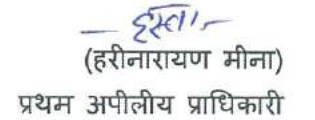 हस्ता/-
(हरीनारायण मीना)
प्रथम अपीलीय प्राधिकारी